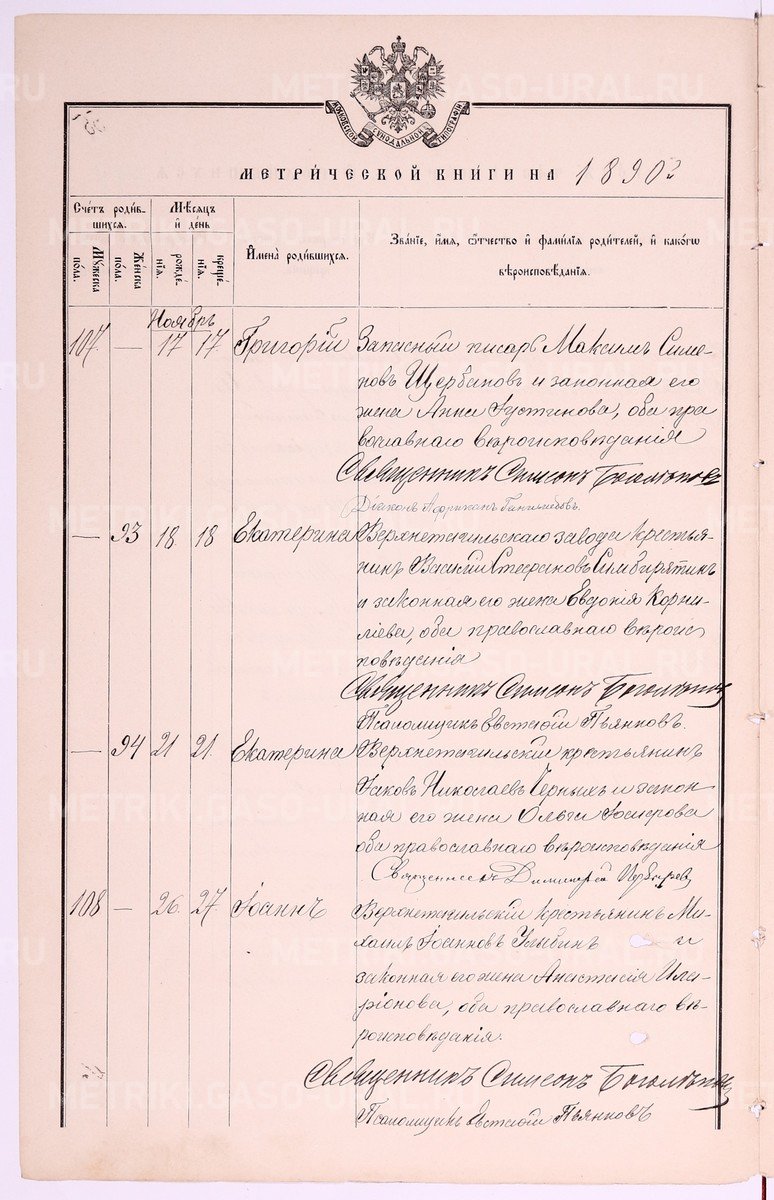 МОСКОВСКОЙ СѴНОДАЛЬНОЙ ТИПОГРАФІИ
МЕТРИ́ЧЕСКОЙ КНИ́ГИ НА 1890
Сче́тъ роди́вшихся.
Мѣ́сяцъ и де́нь
Му́жеска по́ла.
Же́нска по́ла.
рожде́нїѧ.
креще́нїѧ.
И҆мена̀ роди́вшихсѧ.
Зва́нїе, и҆́мѧ, ѻ҆́тчество и҆ фамилїѧ роди́телей, и҆ како́гѡ
вѣроисповѣ́данїѧ.
Ноябрь
107. — 17 17 Григорій Запасный писарь Максимъ Симе-
новъ Щербаковъ и законная его
жена Анна Іустинова, оба пра
вославнаго вѣроисповѣданія
Священникъ Симеонъ Боголѣповъ
Діаконъ Африканъ
— 93 18 18 Екатерина Верхнетагильскаго завода крестья-
нинъ Василій Стефановъ Симбирятинъ
и законная его жена Евдокія Корни-
ліева, оба православнаго вѣроис
повѣданія
Священникъ Симеонъ Боголѣповъ
Псаломщикъ Евстафій Пьянковъ.
— 94 21 21. Екатерина Верхнетагильскій крестьянинъ
Іаковъ Николаевъ Черныхъ и закон-
ная его жена Ольга Іосифова
оба православнаго вѣроисповѣданія
Священникъ Димитрій
108 — 26. 27 Іоаннъ Верхнетагильскій крестьянинъ Ми-
хаилъ Іоанновъ Улыбинъ и
законная его жена Анастасія Ила-
ріонова, оба православнаго вѣ-
роисповѣданія.
Священникъ Симеонъ Боголѣповъ
Псаломщикъ Евстафій Пьянковъ
METRIKI.GASO-URAL.RU